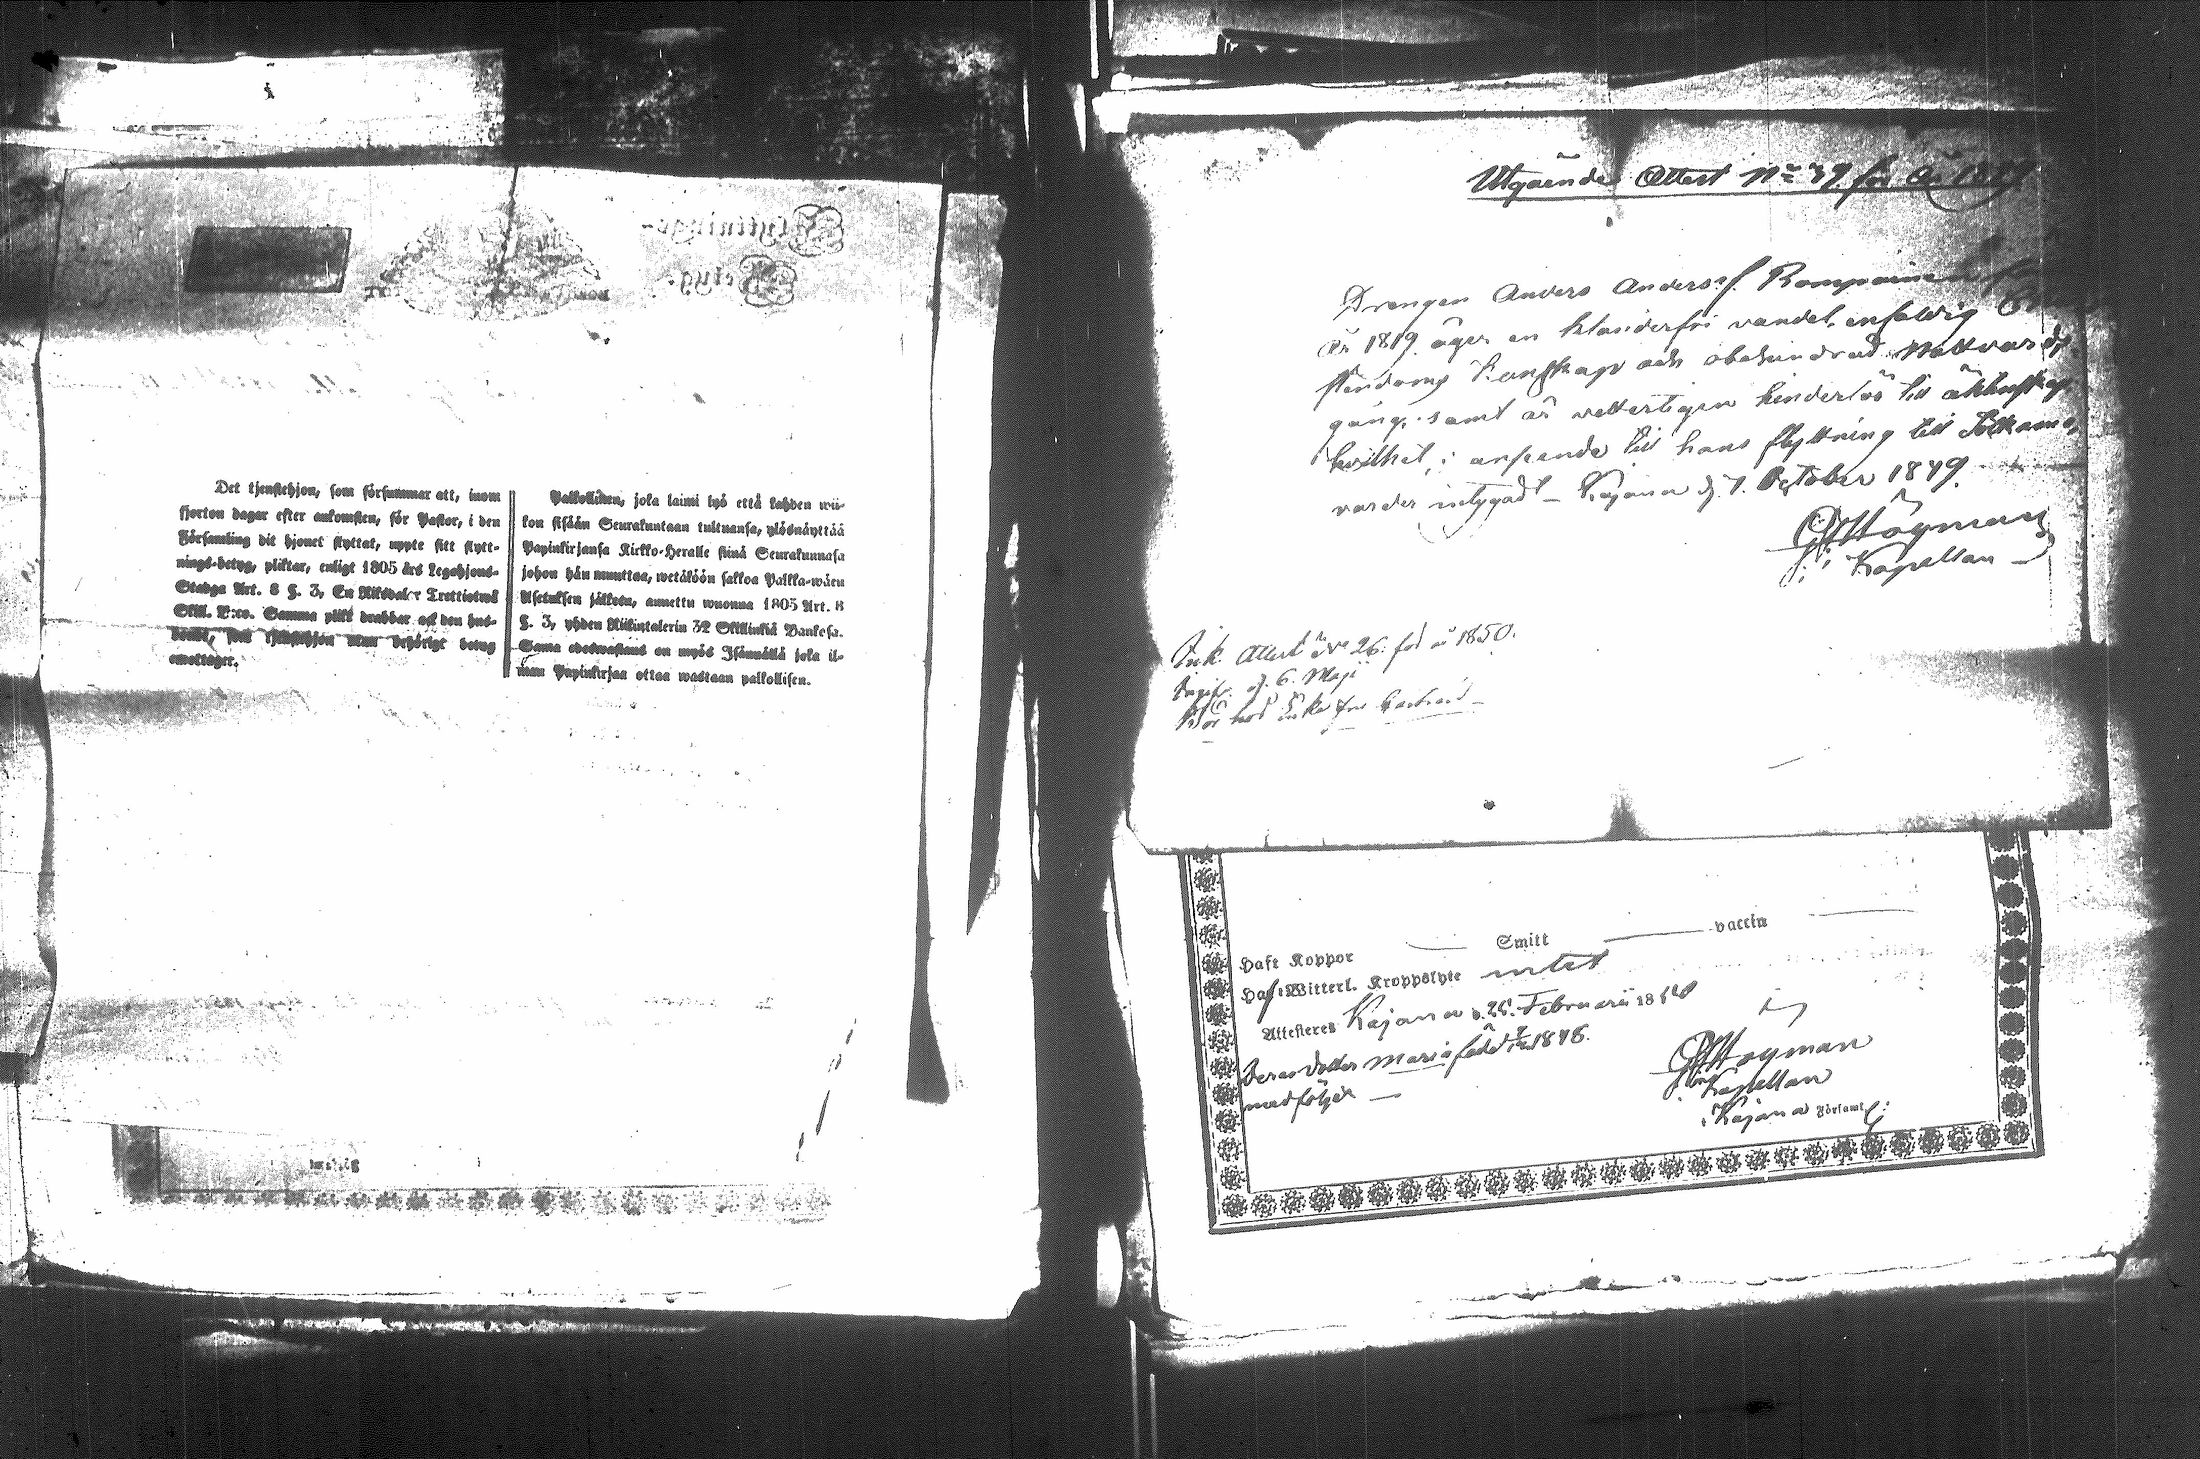 Flyttnings-
Betyg.
Det tjenstehjon, som försummar att, inom
fjorton dagar efter ankomsten, för Pastor, i den
Församling dit hjonet flyttat, uppte sitt flytt-
nings-betyg, pliktar, enligt 1805 års Legohjons-
Stadga Art. 8 §. 3, En Riksdaler Trettiotwå
Skill. B:co. Samma plikt drabbar ock den hus-
bonde, som tjenstehjon utan behörigt betyg
emottager.
Palkollinen, joka laimi lyö että kahden wii-
kon sisään Seurakuntaan tultuansa, ylösnäyttää
Papinkirjansa Kirkko-Heralle siinä Seurakunnasa
johon hän muuttaa, wetäköön sakkoa Palkka-wäen
Asetuksen jälkeen, annettu wuonna 1805 Art. 8
§. 3, yhden Riikintalerin 32 Skillinkiä Bankosa.
Sama edeswastaus on myös Isännällä joka il-
man Papinkirjaa ottaa wastaan palkollisen.
Utgående Attest No 39 för år
Drengen Anders Anders.
år 1819 äger en klanderfri vandel, enfaldig
kunskap och obehindrad Nattvards-
gång, samt är vetterligen hinderlös till äktenskap
i anseende till hans flyttning till Sotkamo,
varder intygadt – Kajana d. 7. October 1849.
Högman
Kapellan
Ink. Attest No 26. för år 1850.
d. 6. Maji
Haft Koppor Smitt vaccin
Haft Witterl. Kroppslyte intet
Attesteres Kajana d. 25. Februarii 18
Deras dotter Maria född 1848.
medföljer –
Högman
Kapellan
i Kajana Församl.